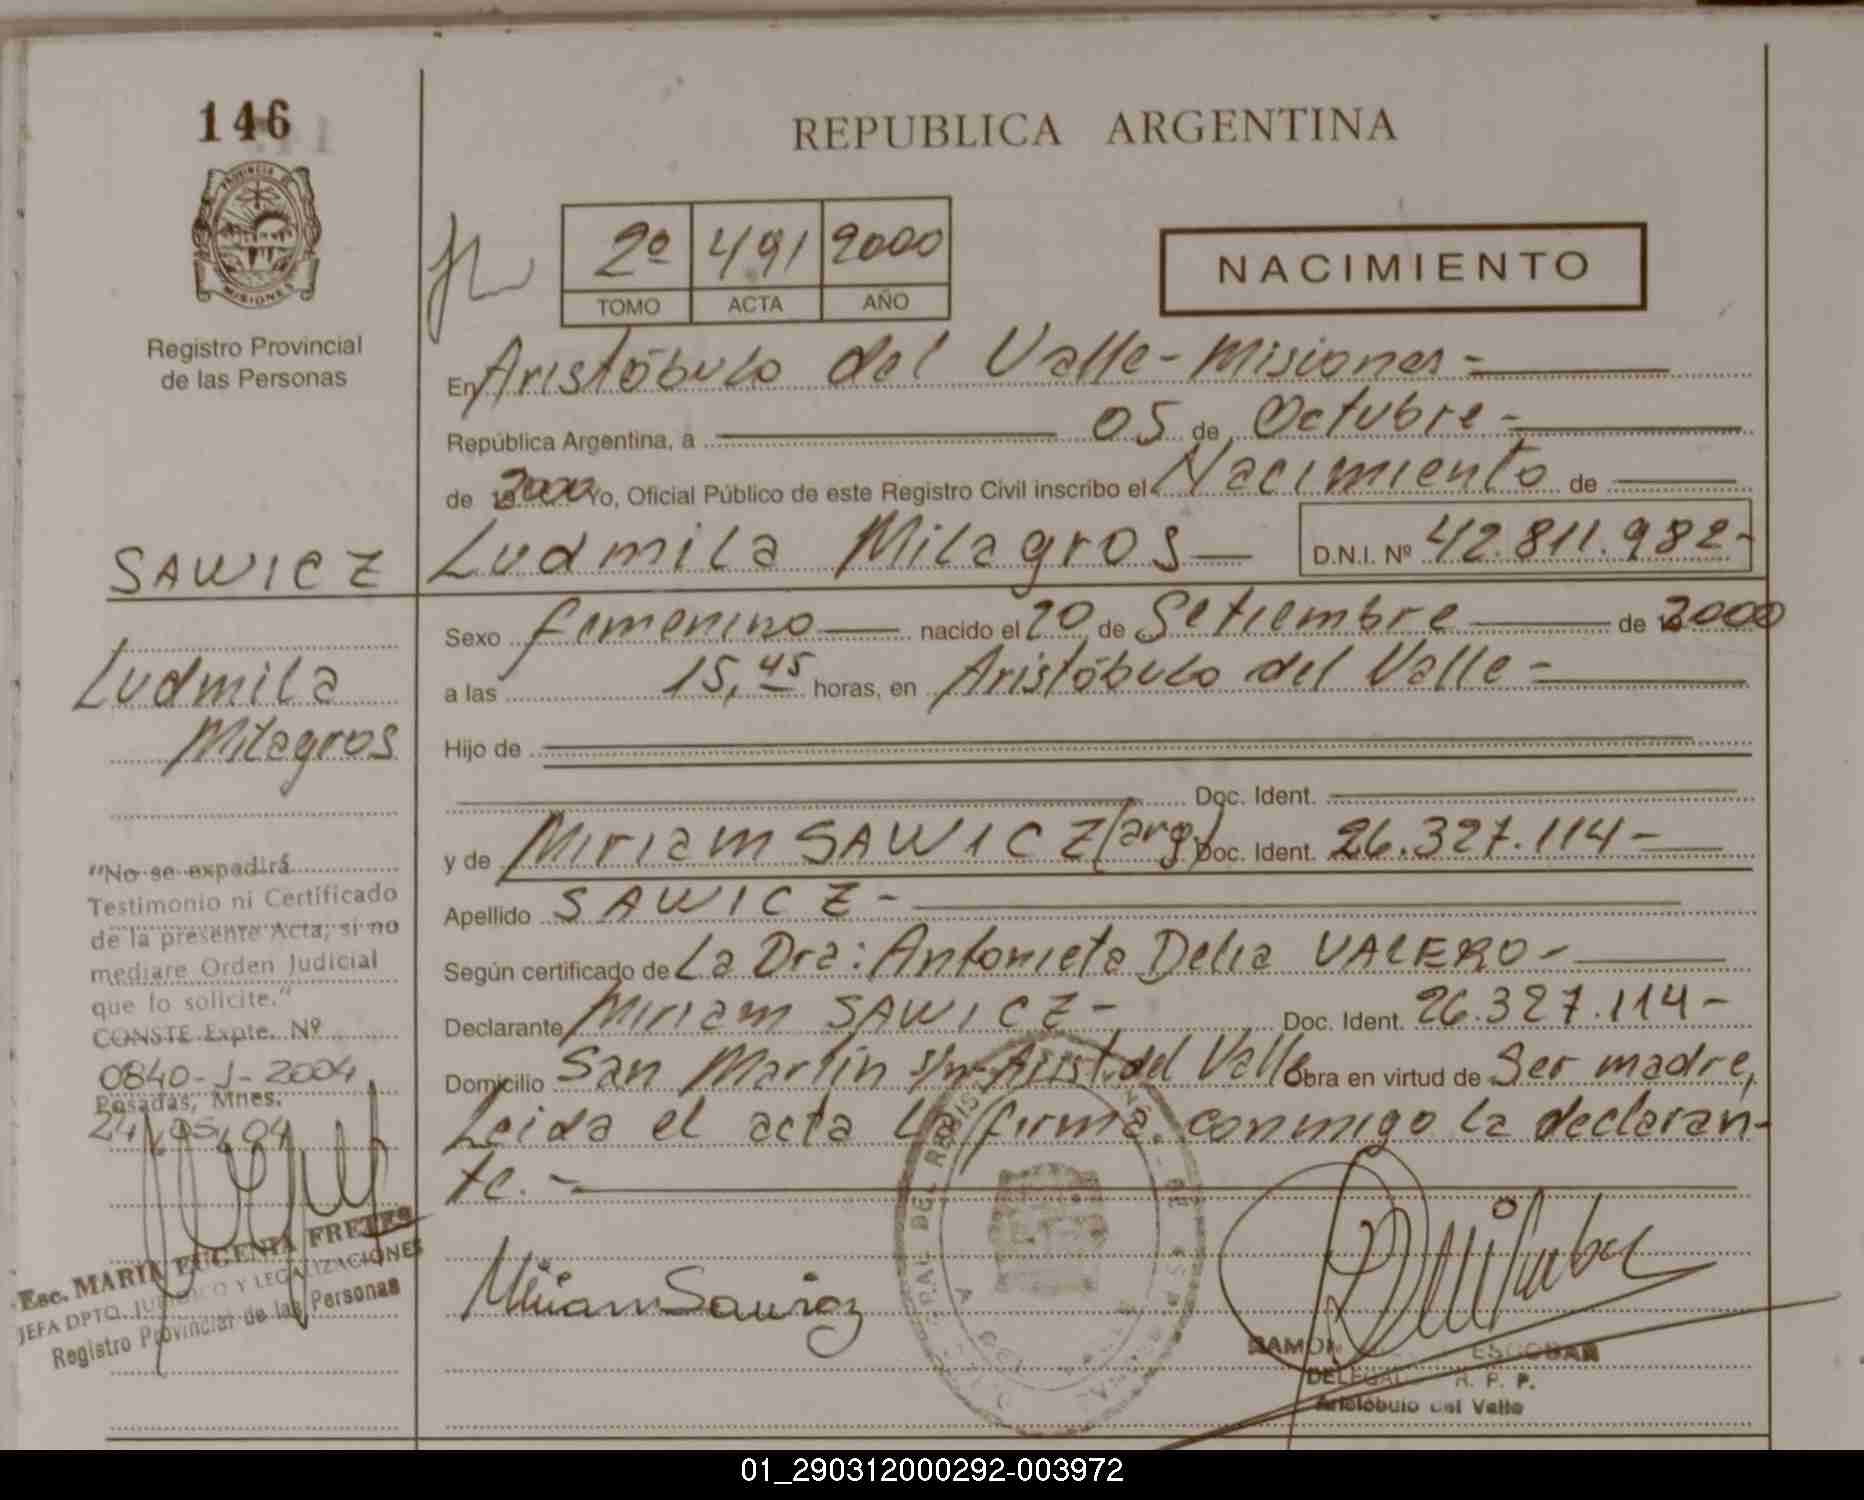 146
PROVINCIA DE
MISIONES
Registro Provincial
de las Personas
REPUBLICA ARGENTINA
2º 491 2000
TOMO ACTA AÑO
NACIMIENTO
En Aristóbulo del Valle - Misiones -
República Argentina, a 05 de Octubre -
de 2000 Yo, Oficial Público de este Registro Civil inscribo el Nacimiento de
SAWICZ Ludmila Milagros - D.N.I. Nº 42.811.982-
Sexo femenino nacido el 20 de Setiembre de 2000
Ludmila
Milagros
a las 15,45 horas, en Aristóbulo del Valle -
Hijo de
Doc. Ident.
y de Miriam SAWICZ (arg.) Doc. Ident. 26.327.114-
Apellido SAWICZ -
Según certificado de La Dra: Antonieta Delia VALERO -
Declarante Miriam SAWICZ - Doc. Ident. 26.327.114-
Domicilio San Martín s/n- Arist. del Valle Obra en virtud de Ser madre,
Leida el acta la firma conmigo la declaran-
te. -
"No se expedirá
Testimonio ni Certificado
de la presente Acta, si no
mediare Orden Judicial
que lo solicite."
CONSTE Expte. Nº
0840-J-2004
Posadas, Mnes.
24,05,04
Esc. MARIA EUGENIA FRETES
JEFA DPTO. JURIDICO Y LEGALIZACIONES
Registro Provincial de las Personas
Miriam Sawicz
RAMON ESCOBAR
DELEGADO R. P. P.
Aristóbulo del Valle
01_290312000292-003972